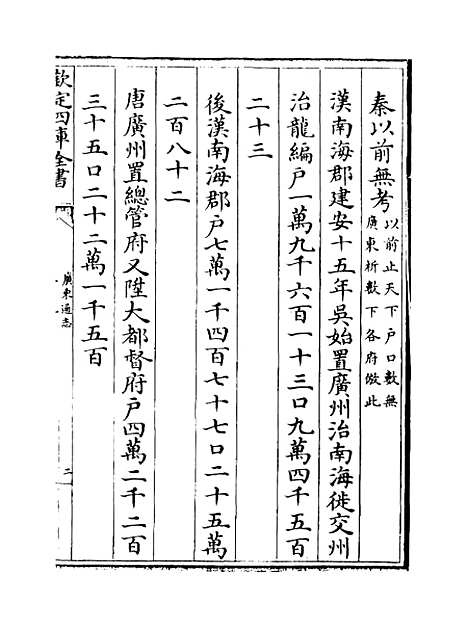 秦以前無考以前止天下户口數無
廣東析數下各府倣此
漢南海郡建安十五年吳始置廣州治南海徙交州
治龍編户一萬九千六百一十三口九萬四千五百
二十三
後漢南海郡户七萬一千四百七十七口二十五萬
二百八十二
唐廣州置總管府又陞大都督府户四萬二千二百
三十五口二十二萬一千五百
欽定四庫全書
廣東通志
二